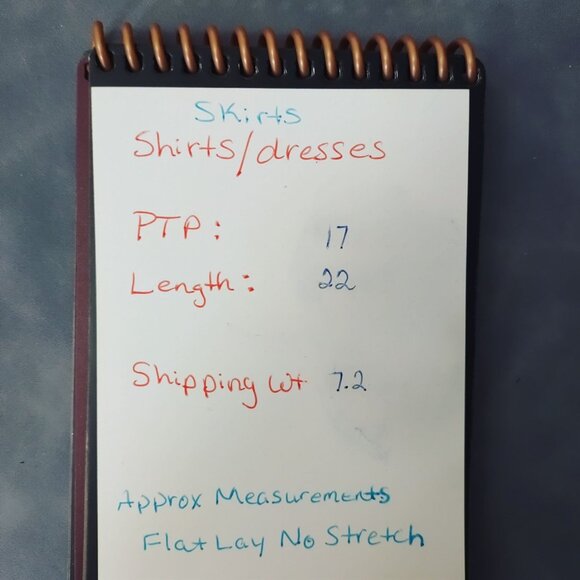 Skirts
Shirts/dresses
PTP: 17
Length: 22
Shipping wt 7.2
Approx Measurements
Flat Lay No Stretch